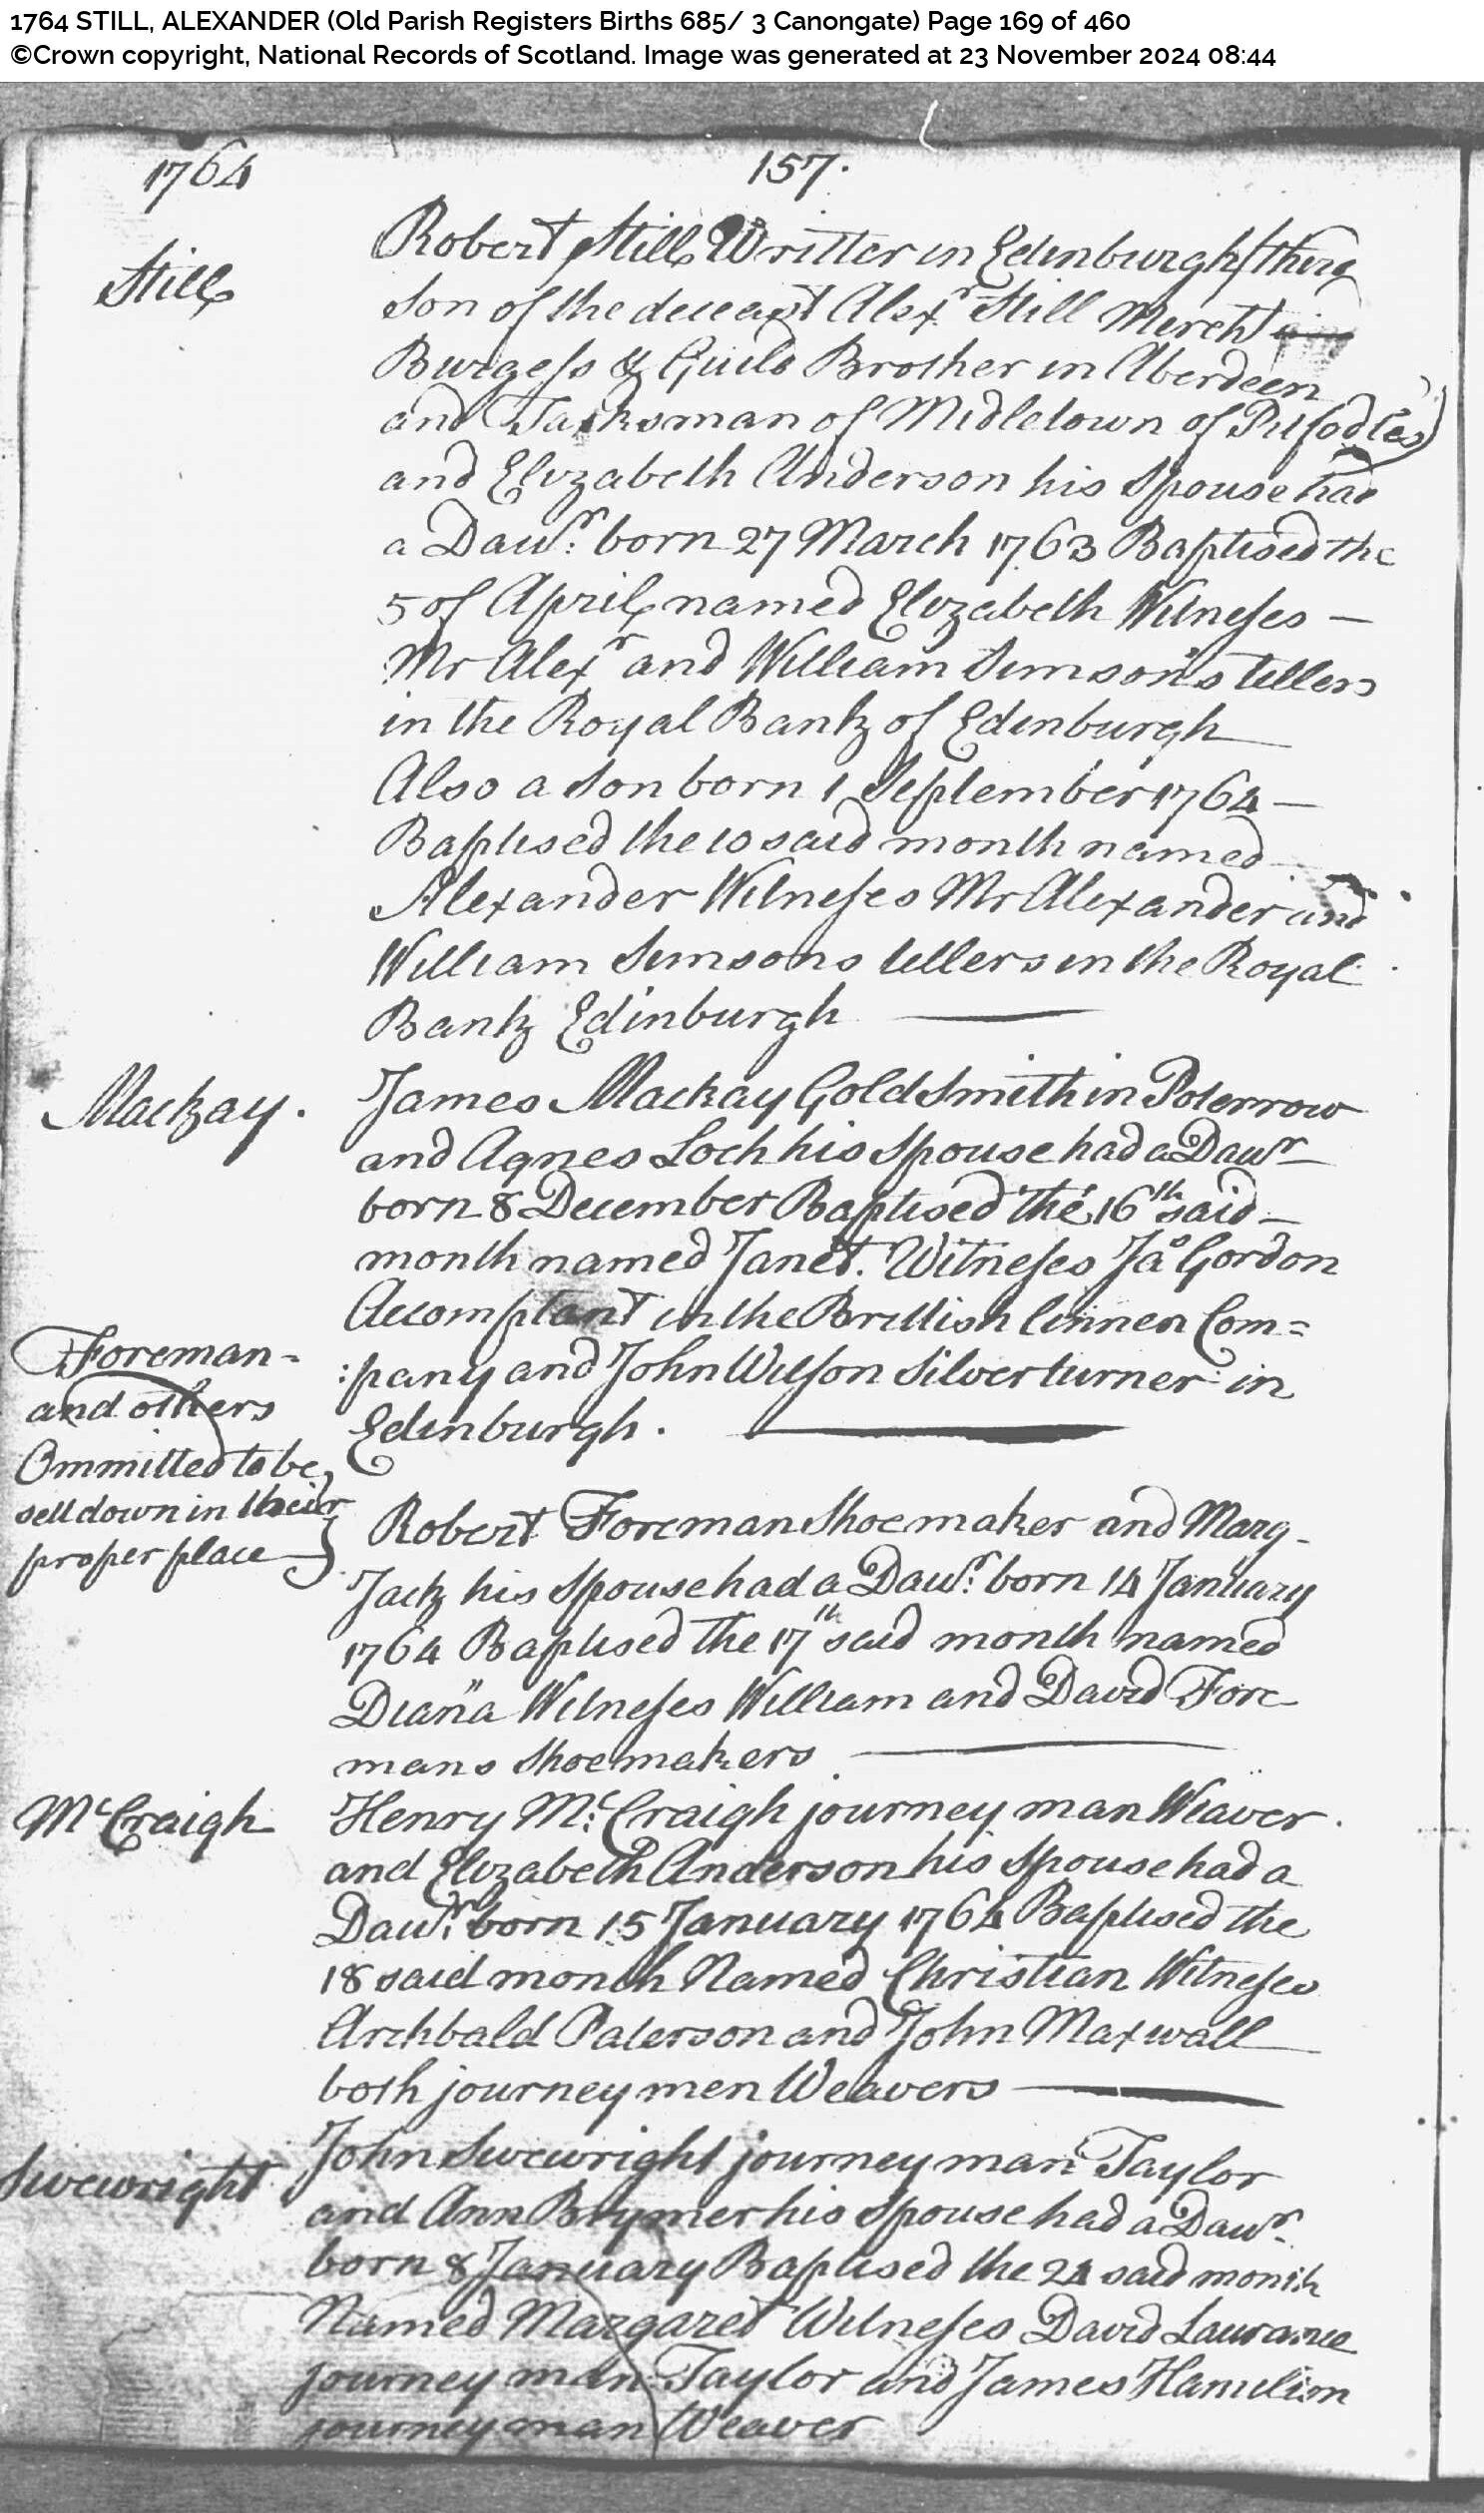 1764 STILL, ALEXANDER (Old Parish Registers Births 685/ 3 Canongate) Page 169 of 460
©Crown copyright, National Records of Scotland. Image was generated at 23 November 2024 08:44
1764 157.
Still
Robert Still Writter in Edinburgh (third
Son of the deceast Alexr Still Mercht
Burgess & Guild Brother in Aberdeen
and Tacksman of Midletown of Pitfodles)
and Elizabeth Anderson his Spouse had
a Dawr: born 27 March 1763 Baptised the
5 of April named Elizabeth Witneses —
Mr Alexr and William Simsons tellers
in the Royal Bank of Edinburgh
Also a Son born 1 September 1764 —
Baptised the 10 said month named
Alexander Witneses Mr Alexander and
William Simsons tellers in the Royal
Bank Edinburgh
Mackay.
James Mackay Goldsmith in Poterrow
and Agnes Loch his Spouse had a Dawr
born 8 December Baptised the 16th said —
month named Janet. Witneses Jao Gordon
Accomptant in the Brittish linnen Com=
:pany and John Wilson Silverturner in
Edinburgh.
Foreman -
and others
Ommitted to be
sett down in their
proper place
Robert Foreman Shoemaker and Marg -
Jack his Spouse had a Dawr: born 14 January
1764 Baptised the 17th said month named
Diana Witneses William and David Fore
mans Shoemakers
McCraigh
Henry Mc:Craigh journey man Weaver
and Elizabeth Anderson his Spouse had a
Dawr: born 15 January 1764 Baptised the
18 said month Named Christian Witneses
Archbald Paterson and John Maxwall
both journey men Weavers
Swewright
John Swewright journey man Taylor
and Ann Brymer his Spouse had a Dawr
born 8 January Baptised the 24 said month
Named Margaret Witneses David Laurance
journey man Taylor and James Hamilton
journey man Weaver